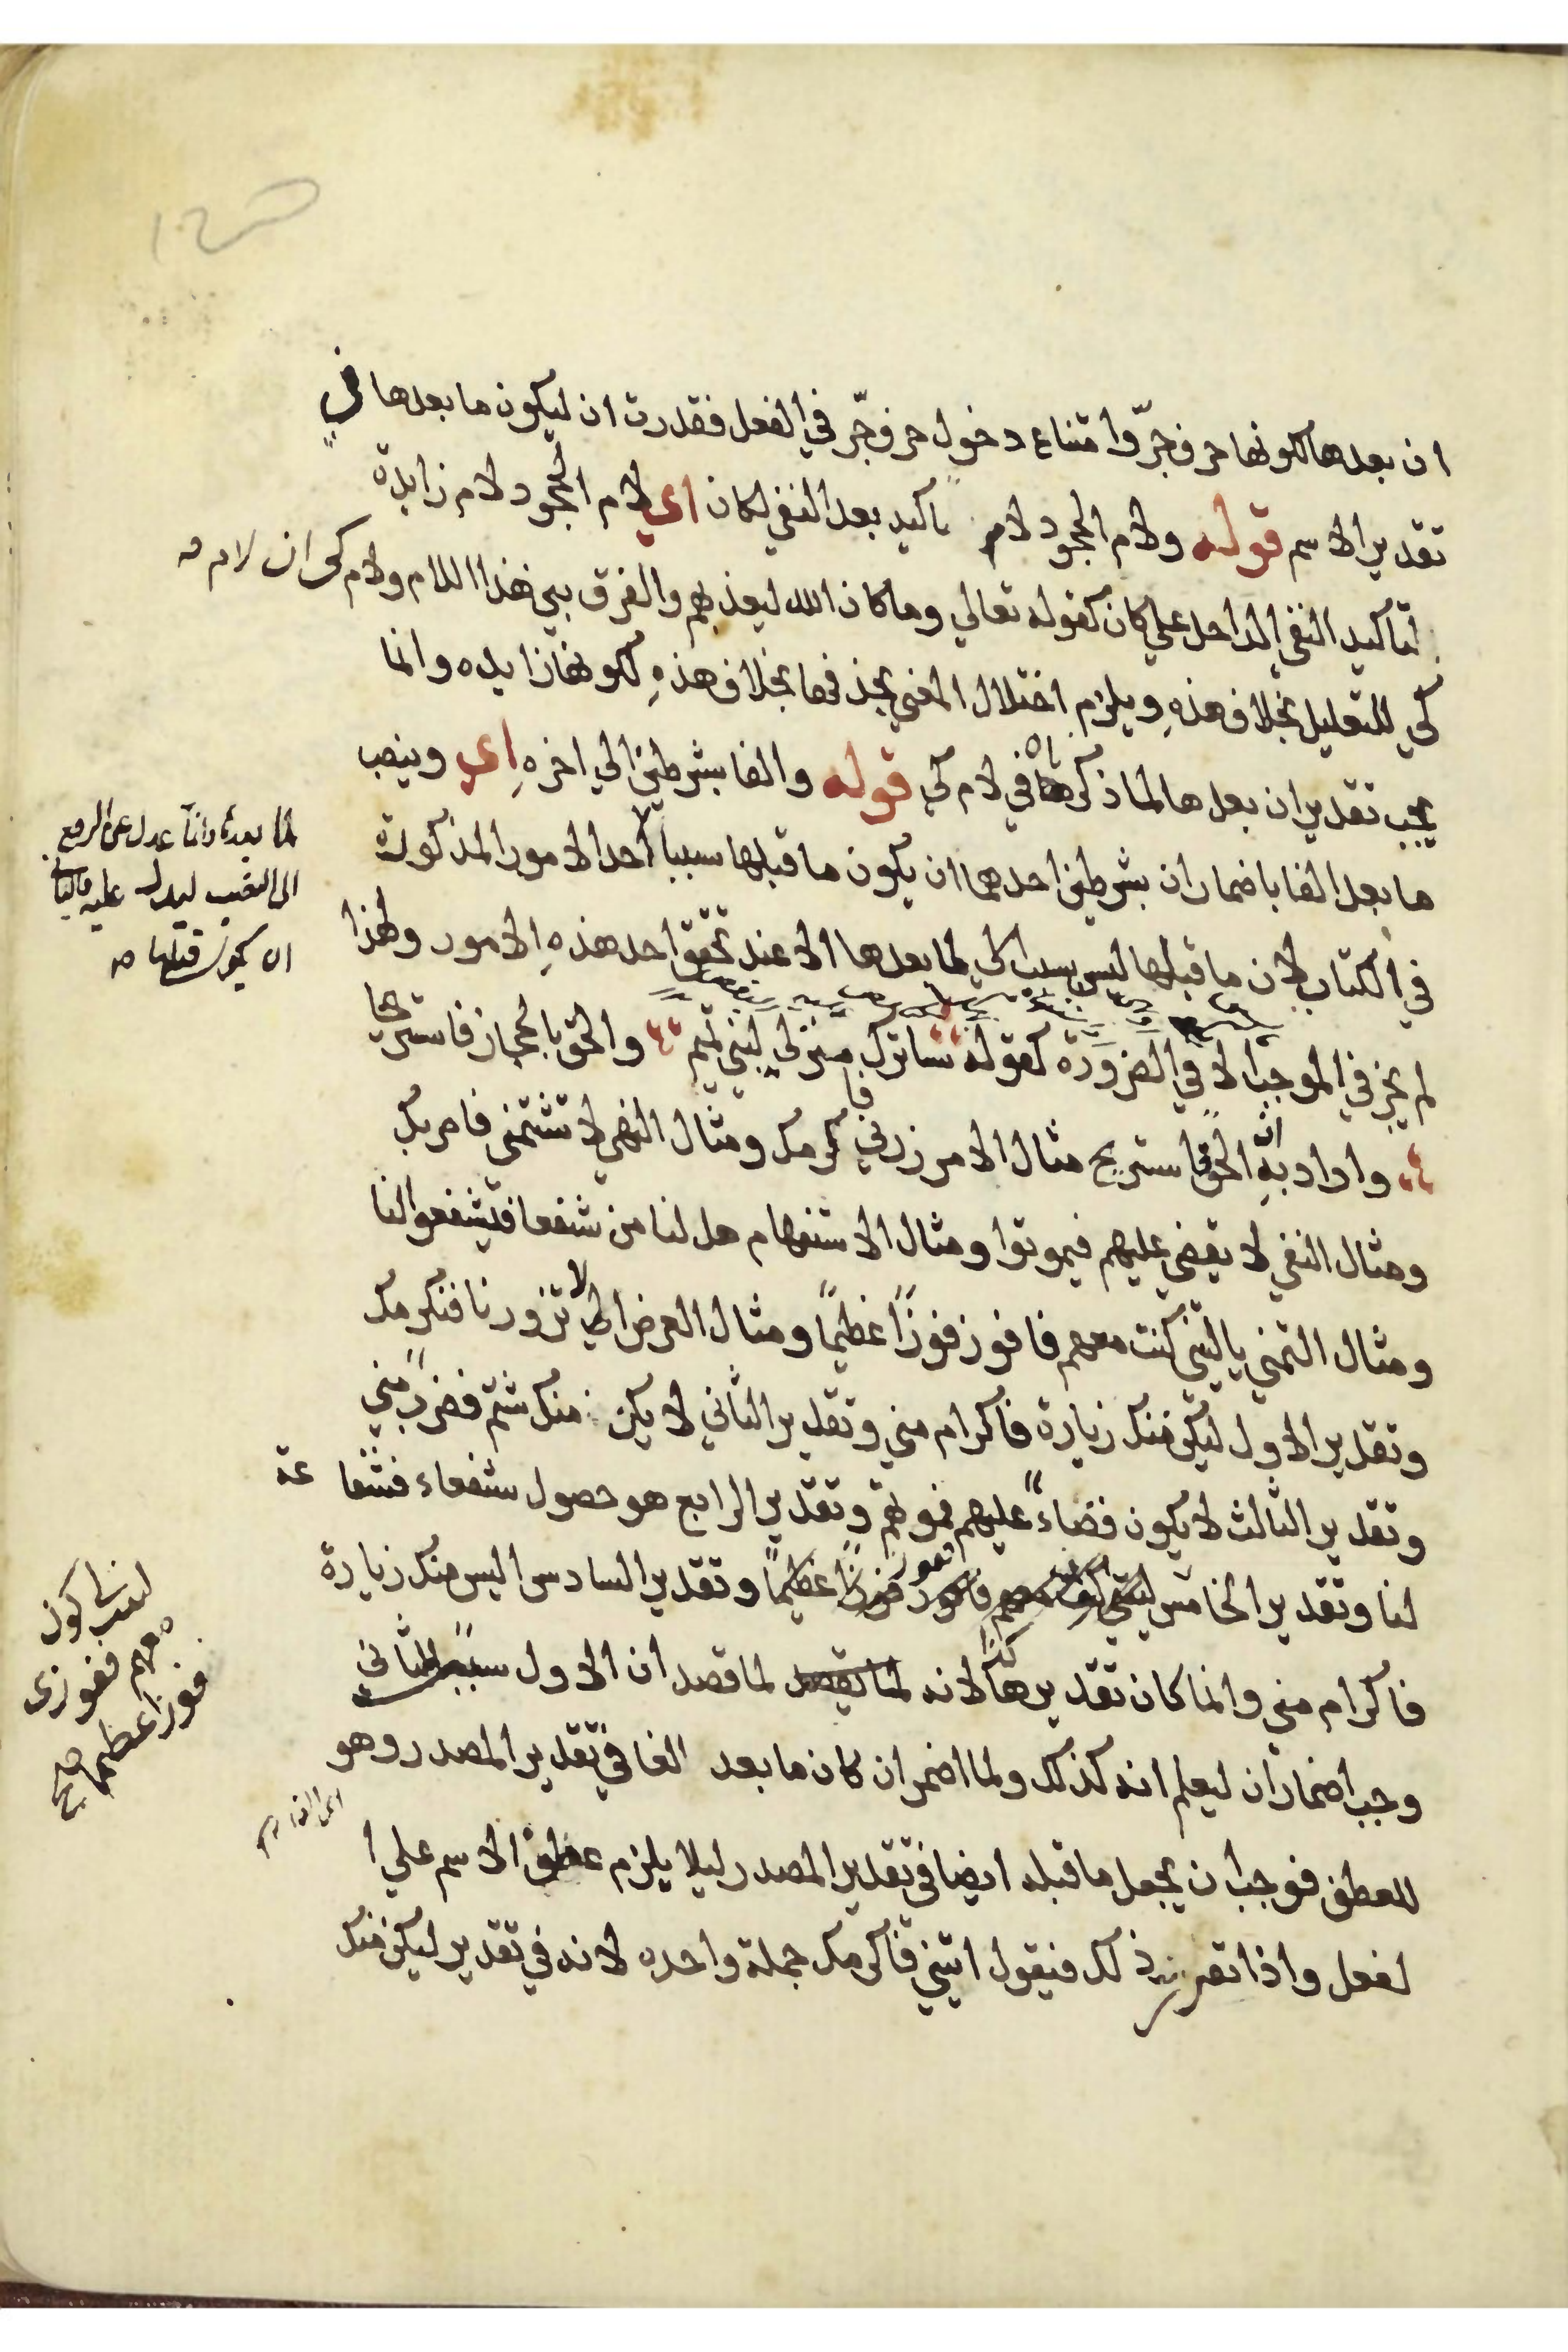 ان بعدها لكونها حرف جرّ وامتناع دخول حرف جرّ في الفعل فقدرت ان ليكون ما بعدها في
تقدير الاسم قوله ولام الجحود لام تاكيد بعد النفي لكان اي لام الجحود لام زايدة
لتاكيد النفي الداخل علي كان كقوله تعالي وما كان الله ليعذبهم والفرق بين هذا اللام ولام كى ان لام
كي للتعليل بخلاف هذهِ ويلزم اختلال المعني بحذفها بخلاف هذهِ لكونها زايده وانما
يجب تقدير ان بعدها لما ذكرناه في لام كي قوله والفا بشرطين الي اخرهِ اي وينصب
ما بعد الفا باضمار ان بشرطين احدهما ان يكون ما قبلها سببا لاحد الامور المذكورة
لما بعدها وانما عدل عن الرفع
الى النصب ليدل عليه
ان يكون قبلها
في الكتاب لان ما قبلها ليس بسبب لما بعدها الا عند تحقق احد هذهِ الامور ولهذا
لم يجز في الموجب الا في الضرورة كقوله ساترك منزلي لبني تميم والحق بالحجاز فاستريحا
واراد بهِ الحق استريح مثال الامر زرني فاكرمك ومثال النهي لا تشتمني فاضربك
ومثال النفي لا يقضي عليهم فيموتوا ومثال الاستفهام هل لنا من شفعا فيشفعوا لنا
ومثال التمني يا ليتني كنت معهم فافوز فوزًا عظيمًا ومثال العرض الا تزورنا فنكرمك
وتقدير الاول ليكن منك زيارة فاكرام مني وتقدير الثاني لا يكن منك شتم فضرب مني
وتقدير الثالث لا يكون قضاء عليهم فموتهم وتقدير الرابع هو حصول شفعاء فشفاعة
لنا وتقدير الخامس عظيمًا وتقدير السادس اليس منك زيارة
فوزا عظيما صح
فاكرام مني وانما كان تقديرها كذا لانه لما قصد ان الاول سبب للثاني
وجب اضمار ان ليعلم انه كذلك ولما اضمر ان كان ما بعد الفا في تقدير المصدر وهو
للعطف فوجب ان يجعل ما قبله ايضا في تقدير المصدر ليلا يلزم عطف الاسم علي ا
لفعل واذا تقرر ذلك فنقول ايتني فاكرمك جملة واحده لانه في تقدير ليكن منك